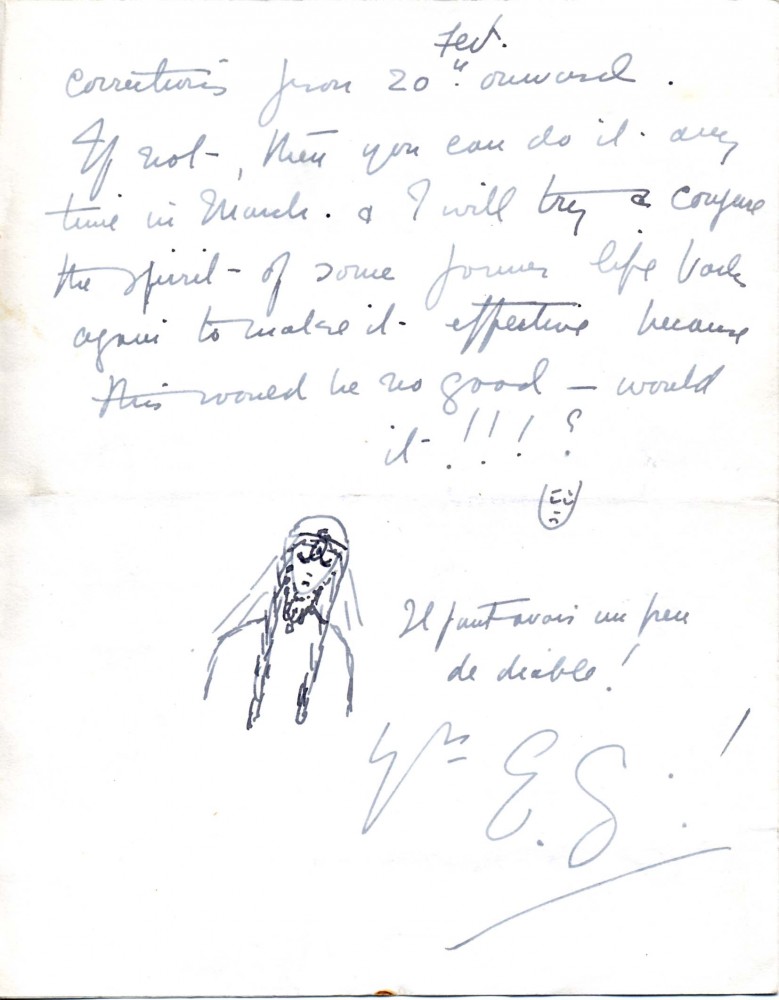 Feb.
corrections from 20th onward.
If not, then you can do it any
time in March. & I will try & conjure
the spirit of some former life back
again to make it effective because
this would be no good — would
it!!!?
Il faut avoir un peu
de diable!
Yrs E.G.!